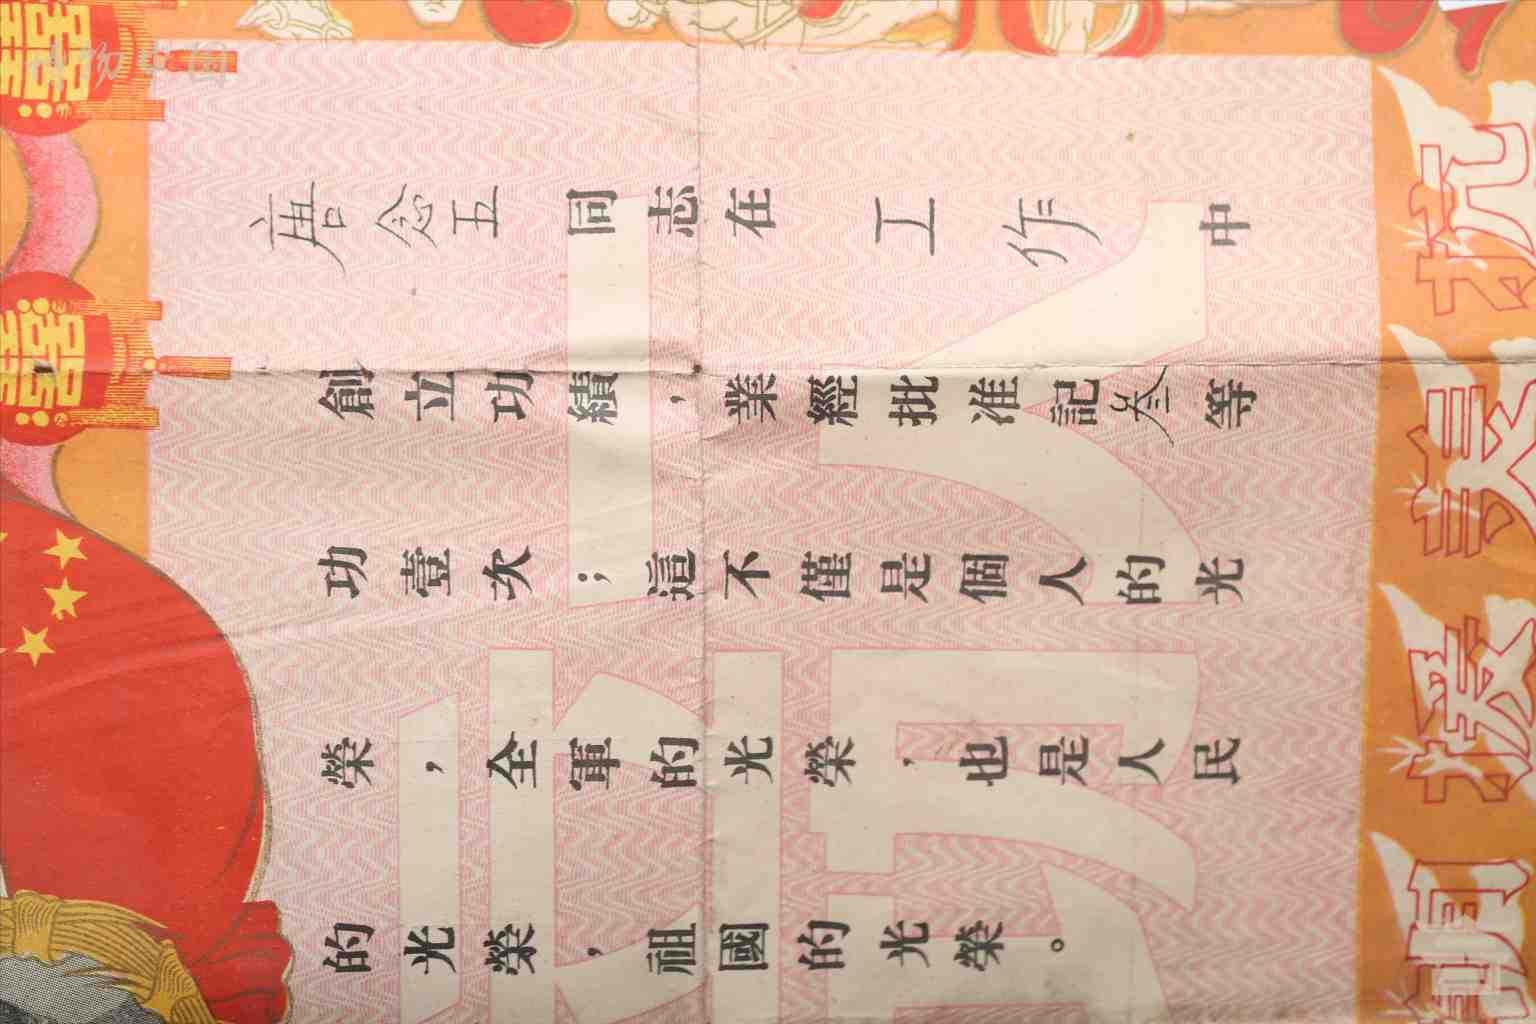 唐念五同志在工作中
創立功績，業經批准記叁等
功壹次；這不僅是個人的光
榮，全軍的光榮，也是人民
的光榮，祖國的光榮。
抗美援朝
囍
囍